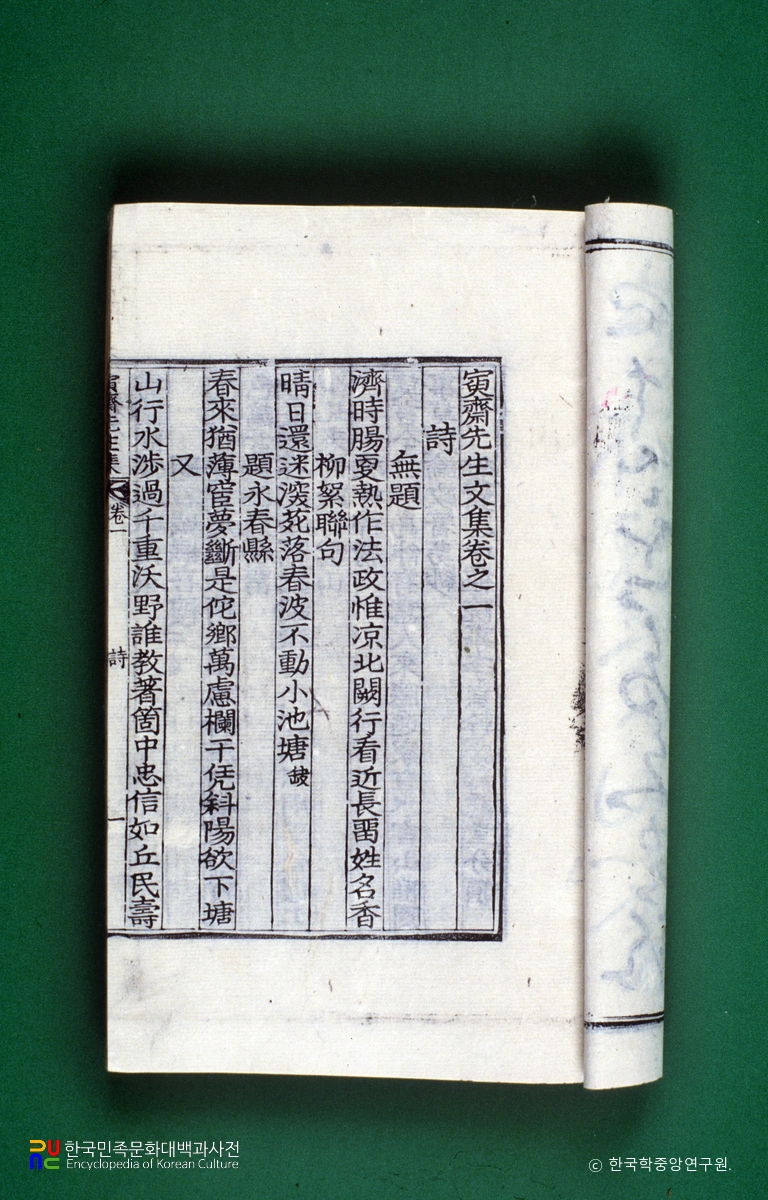 寅齋先生文集卷之一
詩
無題
濟時腸更熱作法政惟凉北闕行看近長留姓名香
柳絮聯句
晴日還迷深苑落春波不動小池塘缺
題永春縣
春來猶薄宦夢斷是佗鄉萬慮欄干凭斜陽欲下塘
又
山行水涉過千重沃野誰教著箇中忠信如丘民壽
寅齋先生集
卷一
詩
一
한국민족문화대백과사전
Encyclopedia of Korean Culture
© 한국학중앙연구원.